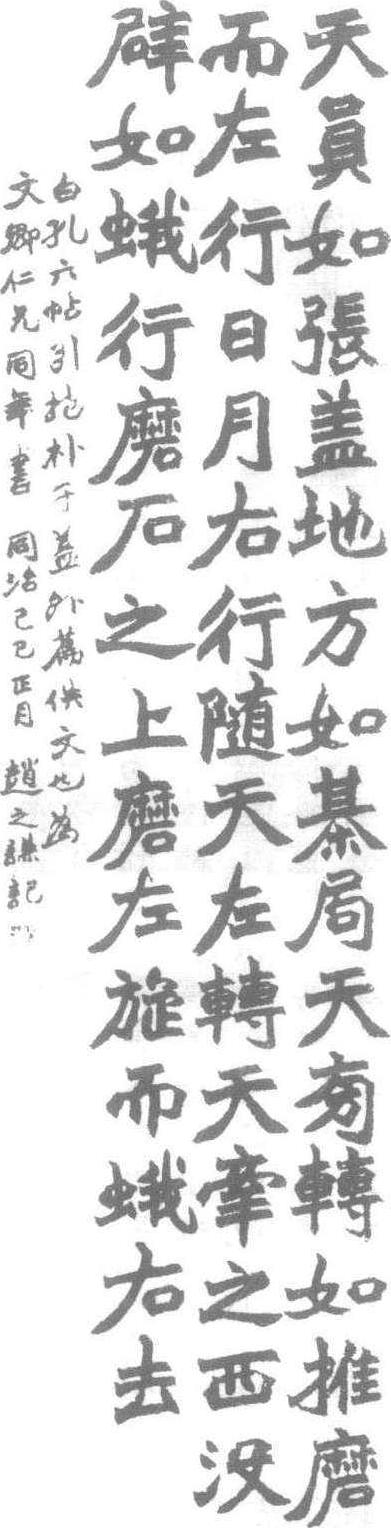 天員如張蓋地方如棊局天旁轉如推磨
而左行日月右行随天左轉天牽之西沒
辟如蛾行磨石之上磨左旋而蛾右去
白孔六帖引抱朴子蓋外篇佚文也為
文卿仁兄同年書 同治己巳正月 趙之謙記